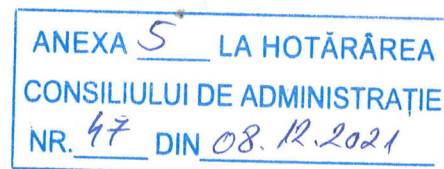 ANEXA 5 LA HOTĂRÂREA
CONSILIULUI DE ADMINISTRAȚIE
NR. 47 DIN 08.12.2021